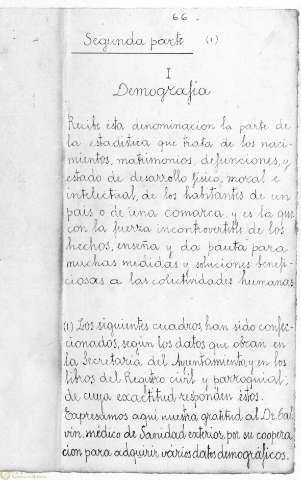 66.
Segunda parte (1)
I
Demografía
Recibe ésta denominacion la parte de
la estadística que trata de los naci-
mientos, matrimonios, defunciones, y
estado de desarrollo físico, moral e
intelectual, de los habitantes de un
pais o de una comarca, y es la que
con la fuerza incontrovertible de los
hechos, enseña y da pauta para
muchas medidas y soluciones benefi-
ciosas a las colectividades humanas
(1) Los siguientes cuadros, han sido confec-
cionados, según los datos que obran en
la Secretaría del Ayuntamiento, y en los
libros del Registro civil y parroquial;
de cuya exactitud responden éstos.
Expresamos aqui nuestra gratitud al Dr. Cal-
vin, médico de Sanidad exterior, por su coopera
cion para adquirir varios datos demográficos.